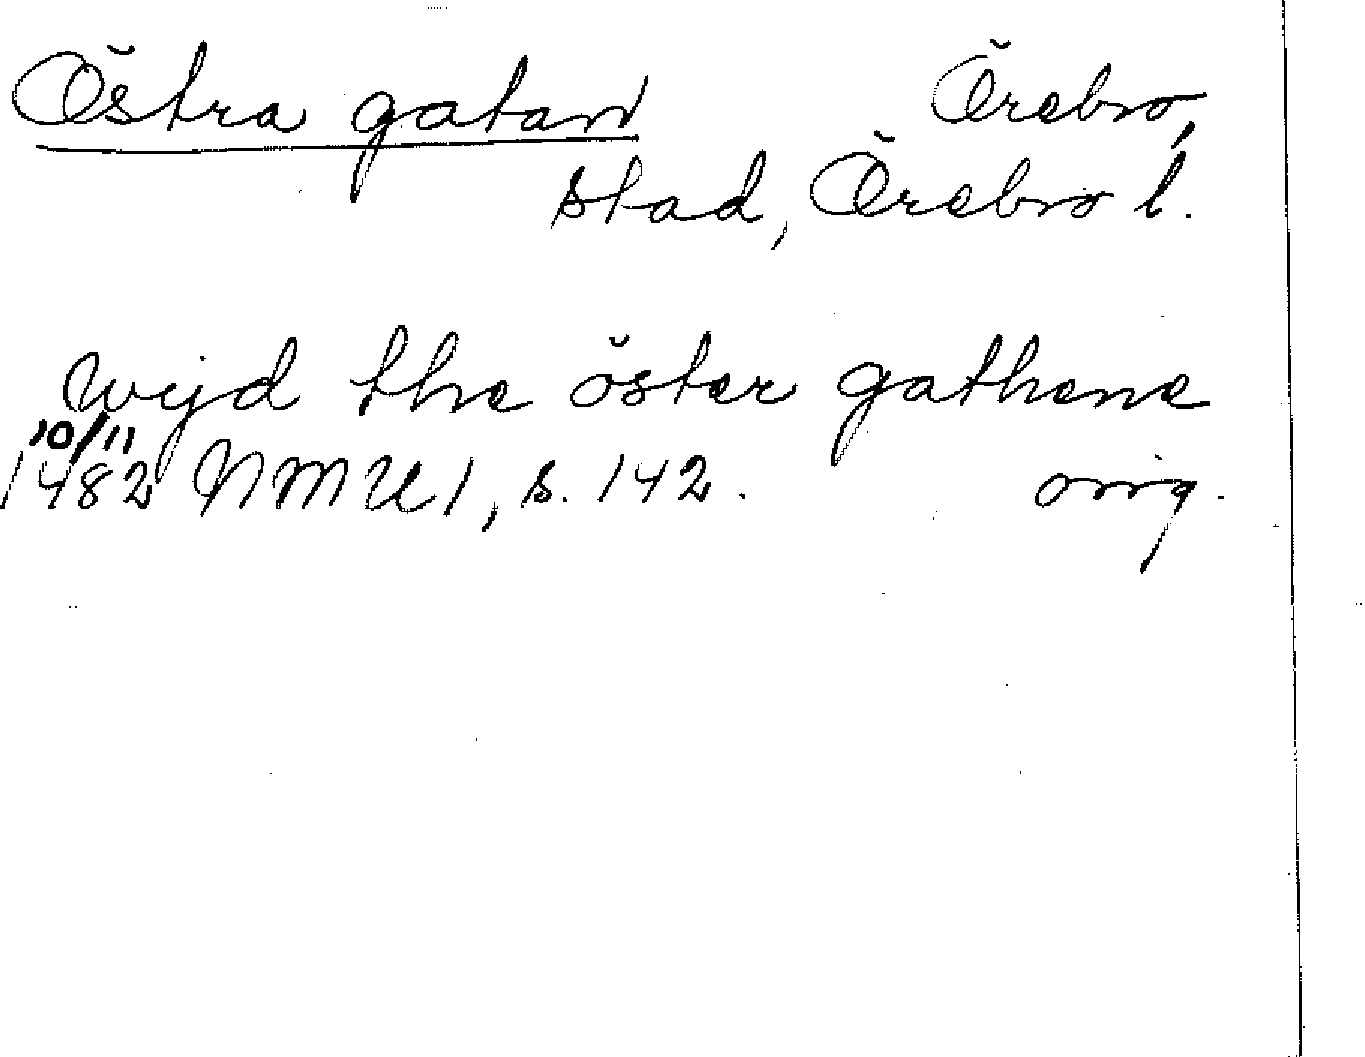 Östra gatan Örebro,
stad, Örebro l.
wijd the öster gathene
10/11
1482 NMU 1, s. 142. orig.